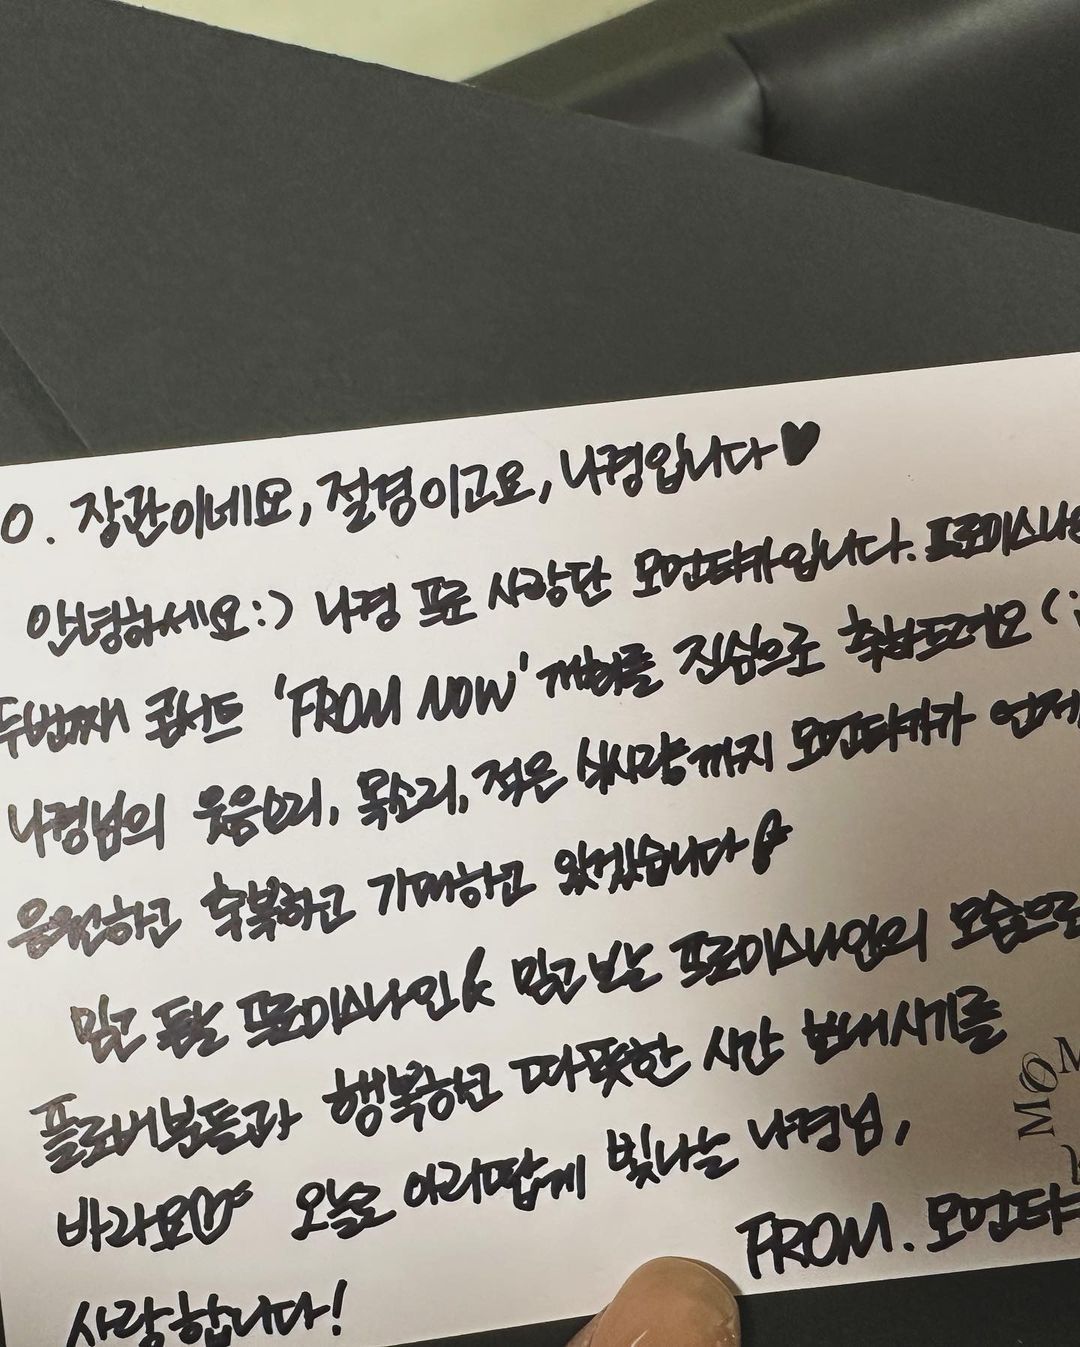 O. 장관이네요, 절경이고요, 나경입니다♥
안녕하세요:) 나경 프로 사랑단 모먼타카입니다. 프로미스나인
두번째 콘서트 'FROM NOW' 개최를 진심으로 축하드려요(:
나경님의 웃음소리, 목소리, 적은 식사량까지 모먼타카가 언제나
응원하고 축복하고 기대하고 있겠습니다
믿고 들을 프로미스나인 믿고 볼 프로미스나인의 모습으로
플로버분들과 행복하고 따뜻한 시간 보내시기를
바라요♡ 오늘도 아리땁게 빛나는 나경님,
사랑합니다!
FROM. 모먼타
MOM